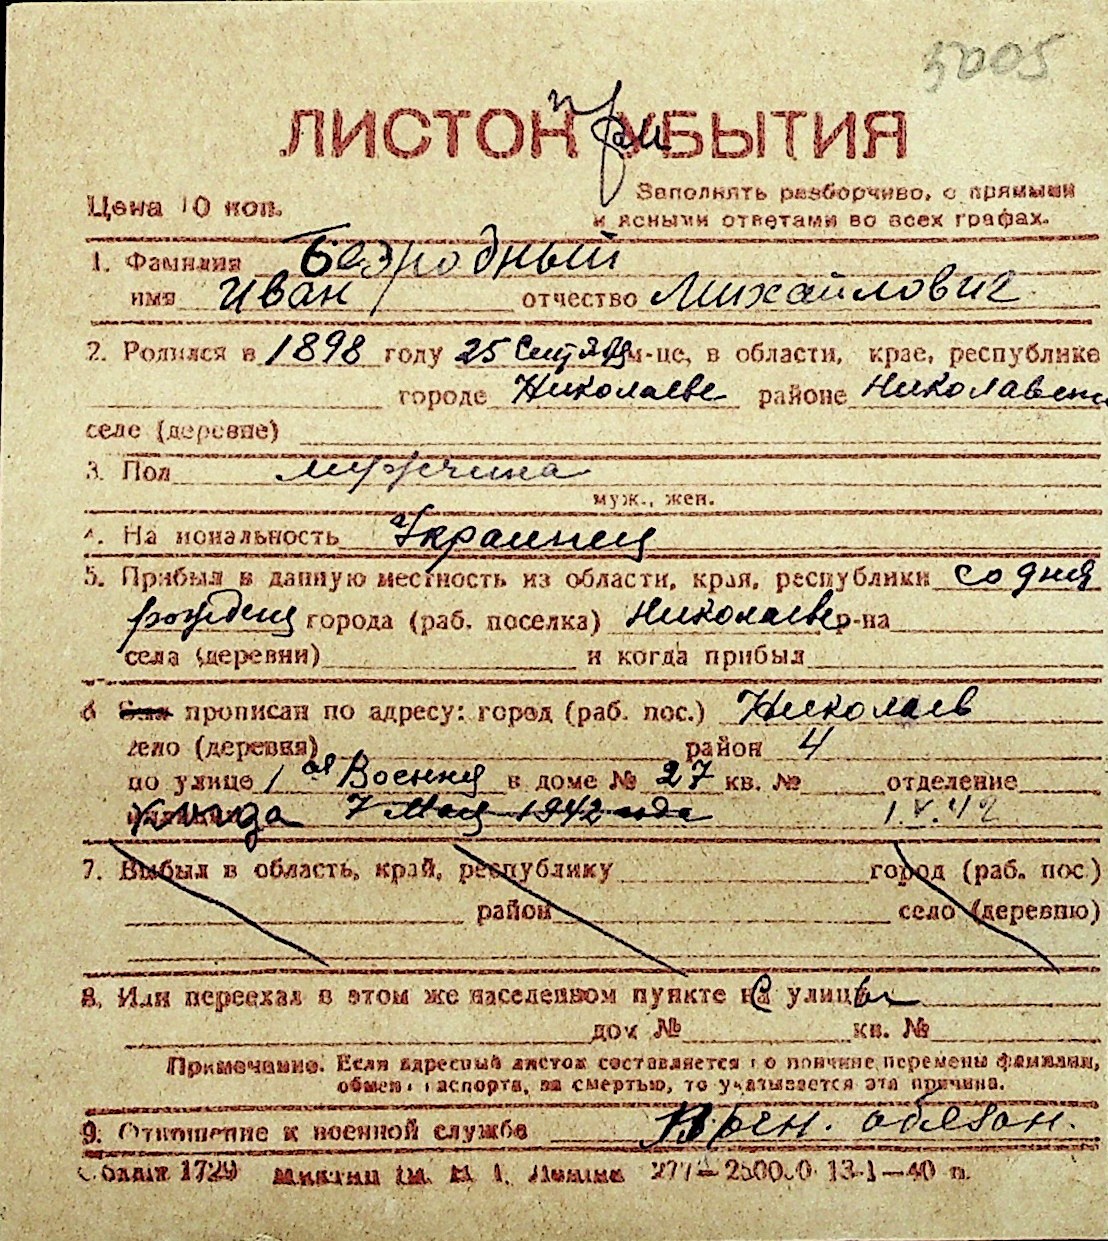 5005
ЛИСТОК при УБЫТИЯ
Цена 10 коп.
Заполнять разборчиво, с прямыми
и ясными ответами во всех графах.
1. Фамилия Безродный
имя Иван отчество Михайлович
2. Родился в 1898 году 25 Сентяб м-це, в области, крае, республике
городе Николаеве районе Николаевск
селе (деревне)
3. Пол мужчина
муж., жен.
4. Национальность Украинец
5. Прибыл в данную местность из области, края, республики со дня
рожден города (раб. поселка) Николаеве р-на
села (деревни) и когда прибыл
6 Был прописан по адресу: город (раб. пос.) Николаев
село (деревня) район 4
по улице 1ая Военная в доме № 27 кв. № отделение
7 Мая 1942 года 1.V.42
7. Выбыл в область, край, республику город (раб. пос.)
район село (деревню)
8. Или переехал в этом же населенном пункте на С улицы
дом № кв. №
Примечание. Если адресный листок составляется по причине перемены фамилии,
обмена паспорта, за смертью, то указывается эта причина.
9. Отношение к военной службе Воен. обязан.
1729 13-1—40 г.